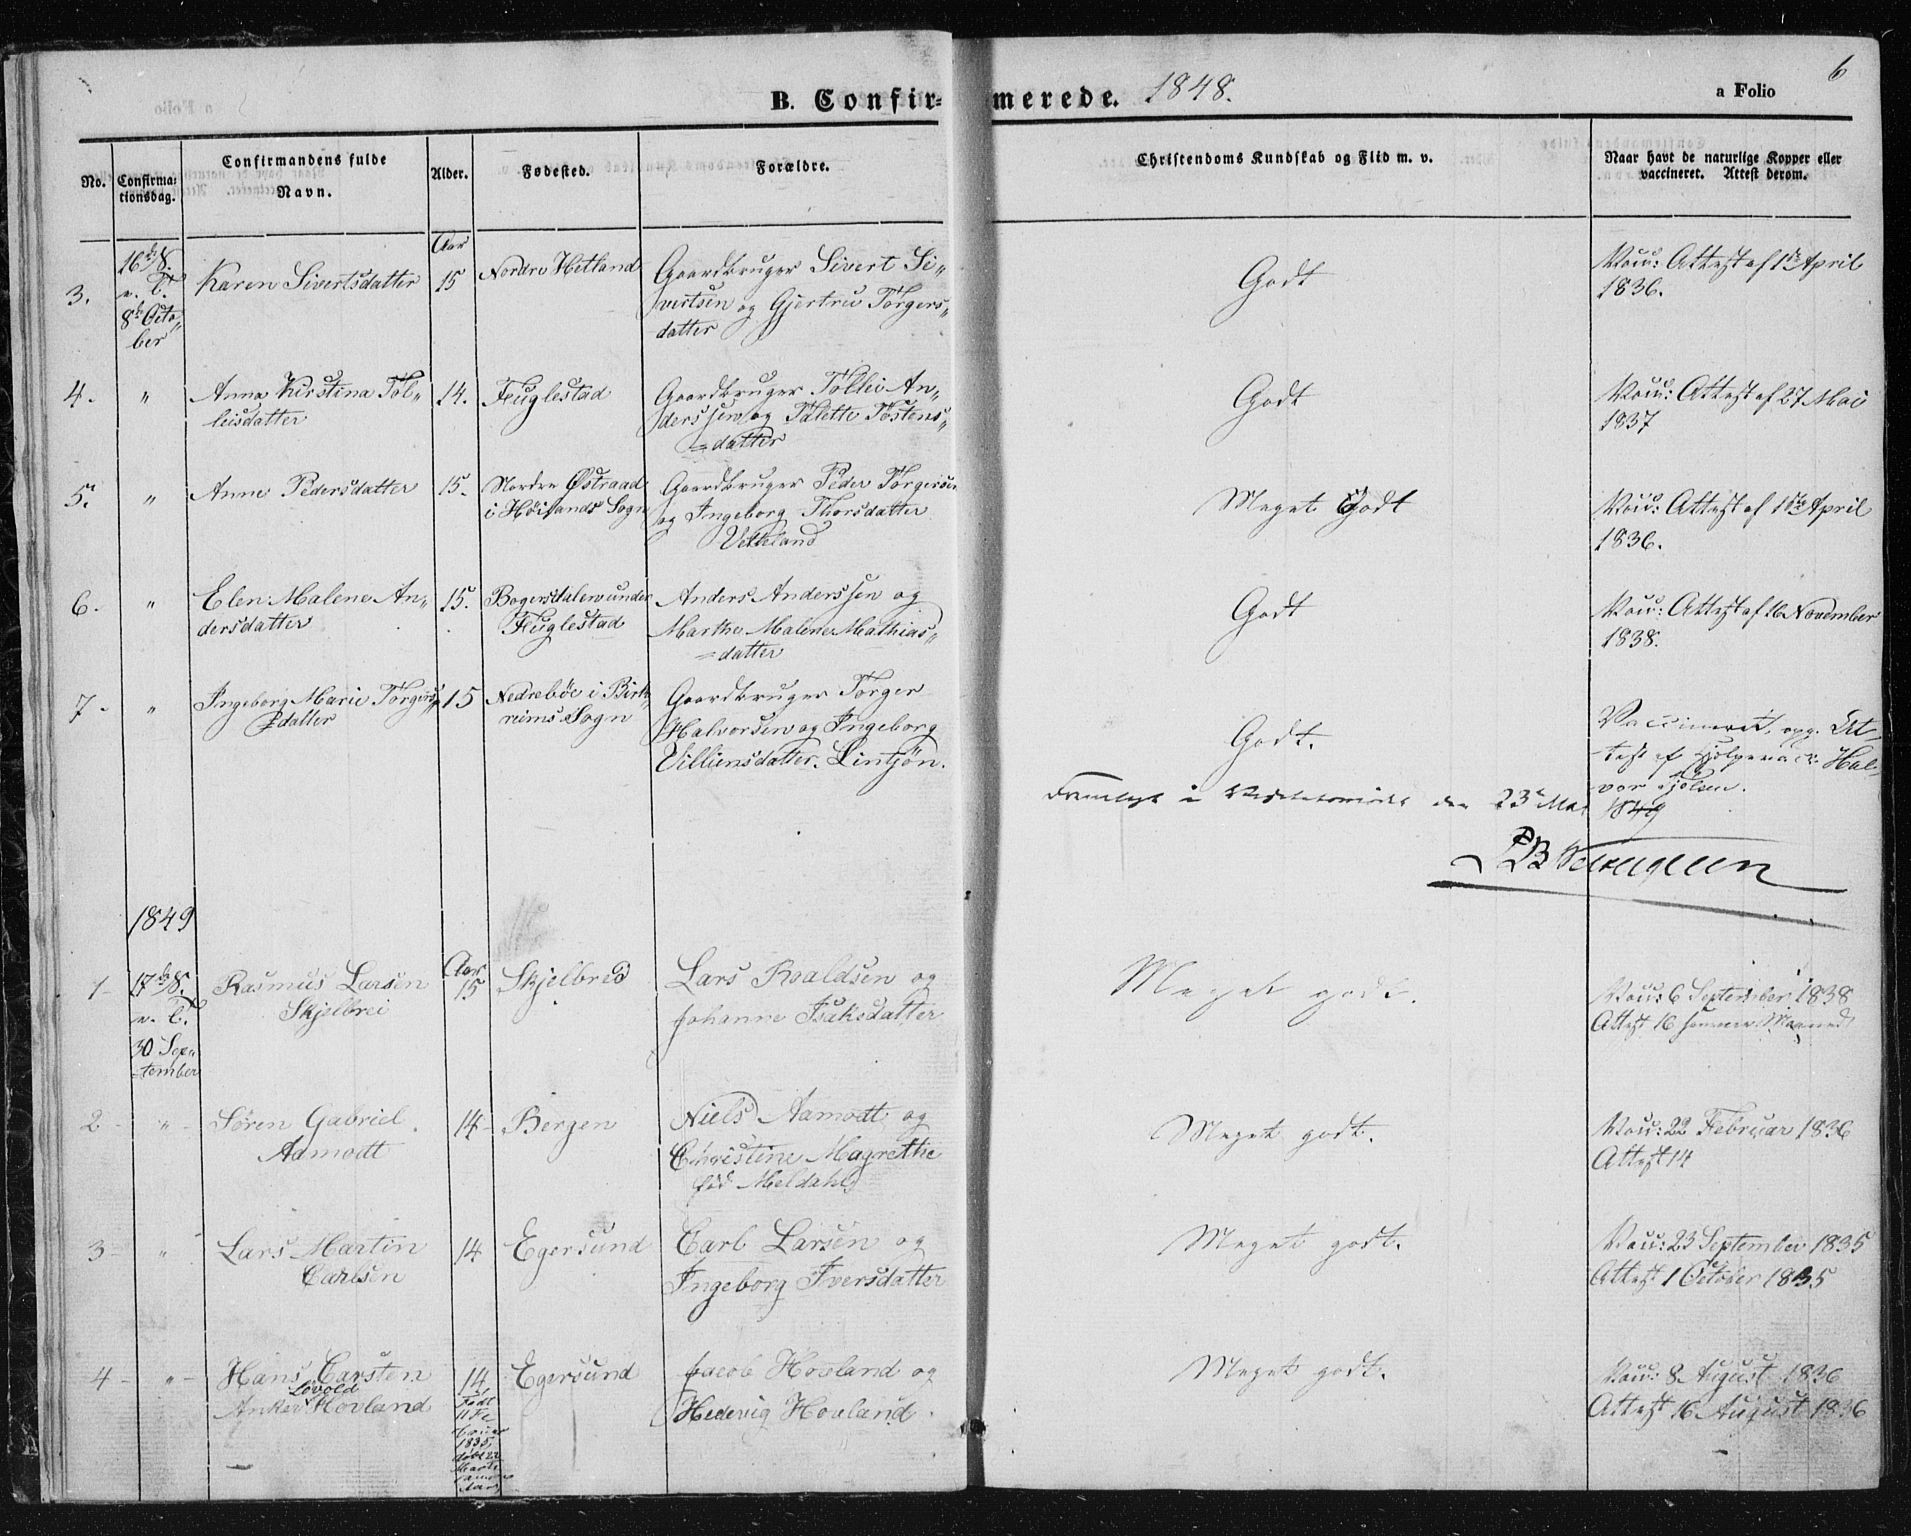 6
B. Confir=merede. 1848.
a Folio
No.
Confirma=
tionsdag.
Confirmandens fulde
Navn.
Alder.
Fødested.
Forældre.
Christendoms Kundskab og Flid m. v.
Naar havt de naturlige Kopper eller
vaccineret. Attest derom.
Aar
3.
8de Octo„
ber
Karen Sivertsdatter
15
Nordre Hetland
Gaardbruger Sivert Si„
vertsen og Gjertru Torgers„
datter
Godt
Vacc: Attest af 1ste April
1836.
4.
"
Anna Kirstina Tol„
leisdatter
14.
Fuglestad
Gaardbruger Tollei An„
derssen og Talette Tostens„
=datter
Godt
Vacc: Attest af 27 Mai
1837
5.
"
Anne Pedersdatter
15.
Nordre Østraad
i Høilands Sogn
Gaardbruger Peder Torgersen
og Ingeborg Thorsdatter
Vetteland
Meget Godt
Vacc: Attest af 1ste April
1836.
6.
"
Elen Malene An„
dersdatter
15.
Bogersdalen under
Fuglestad
Anders Anderssen og
Marthe Malene Mathias„
=datter
Godt
Vacc: Attest af 16 November
1838.
7.
"
Ingeborg Marie Torgers„
datter
15
Nedrebøe i Birk„
reims Sogn
Gaardbruger Torger
Halvorsen og Ingeborg
Villiemsdatter. Lintjön.
Godt.
Vaccineret, opg. At„
test af Hjelpevacc. Hal„
vor
1849
Fremlagt i den 23de Mai
1849
1
17 S.
e. T.
30 Sep„
=tember
Rasmus Larsen
Skjelbrei
Aar
15
Skjelbred
Lars Roaldsen og
Johanne Isaksdatter
Meget godt.
Vacc: 6 September 1838
Attest 16 samme Maaned
2
"
Sören Gabriel
Aamodt
14
Bergen
Niels Aamodt og
Christine Magrethe
föd Meldahl
Meget godt.
Vacc: 22 Februar 1836
Attest 14
3
"
Lars Martin
Carlsen
14
Egersund
Carl Larsen og
Ingeborg Iversdatter
Meget godt.
Vacc: 23 September 1835
Attest 1 October 1835
4
"
Hans Carsten
Lövold
Anker Hovland
14
Födt
11 Fe
bruar
1835,
döbt 22
Marts
samme
Aar
Egersund
Jacob Hovland og
Hedevig Hovland.
Meget godt.
Vacc: 8 August 1836
Attest 16 August 1836